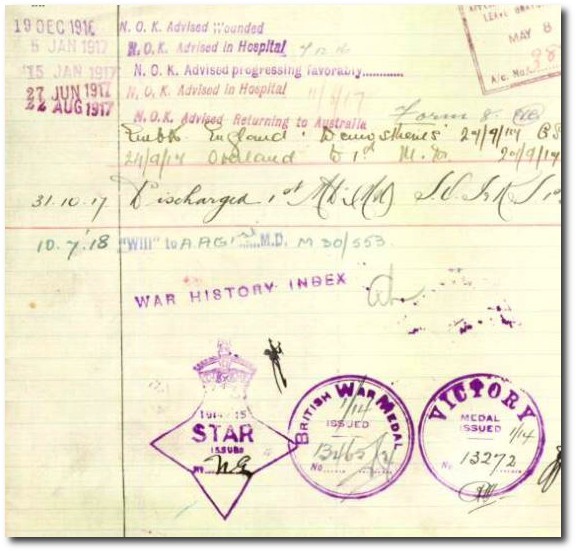 LEAVE GRATUITY
MAY 8
A/c. No.
19 DEC 1916 N. O. K. Advised Wounded
5 JAN 1917 N. O. K. Advised in Hospital
15 JAN 1917 N. O. K. Advised progressing favorably............
27 JUN 1917 N. O. K. Advised in Hospital
22 AUG 1917 N.O.K. Advised Returning to Australia
England "Demosthenes" 27/9/17
24/9/17 Overland to 1st M.D. 24/9/17
31.10.17 Discharged 1st M.D. (MU)
10.7.18 "Will" to A.A.G. 1st M.D. M 30/553.
WAR HISTORY INDEX
1914-15
STAR
ISSUED
BRITISH WAR MEDAL
1/14
ISSUED
No
VICTORY
MEDAL
ISSUED 1/14
No 13272